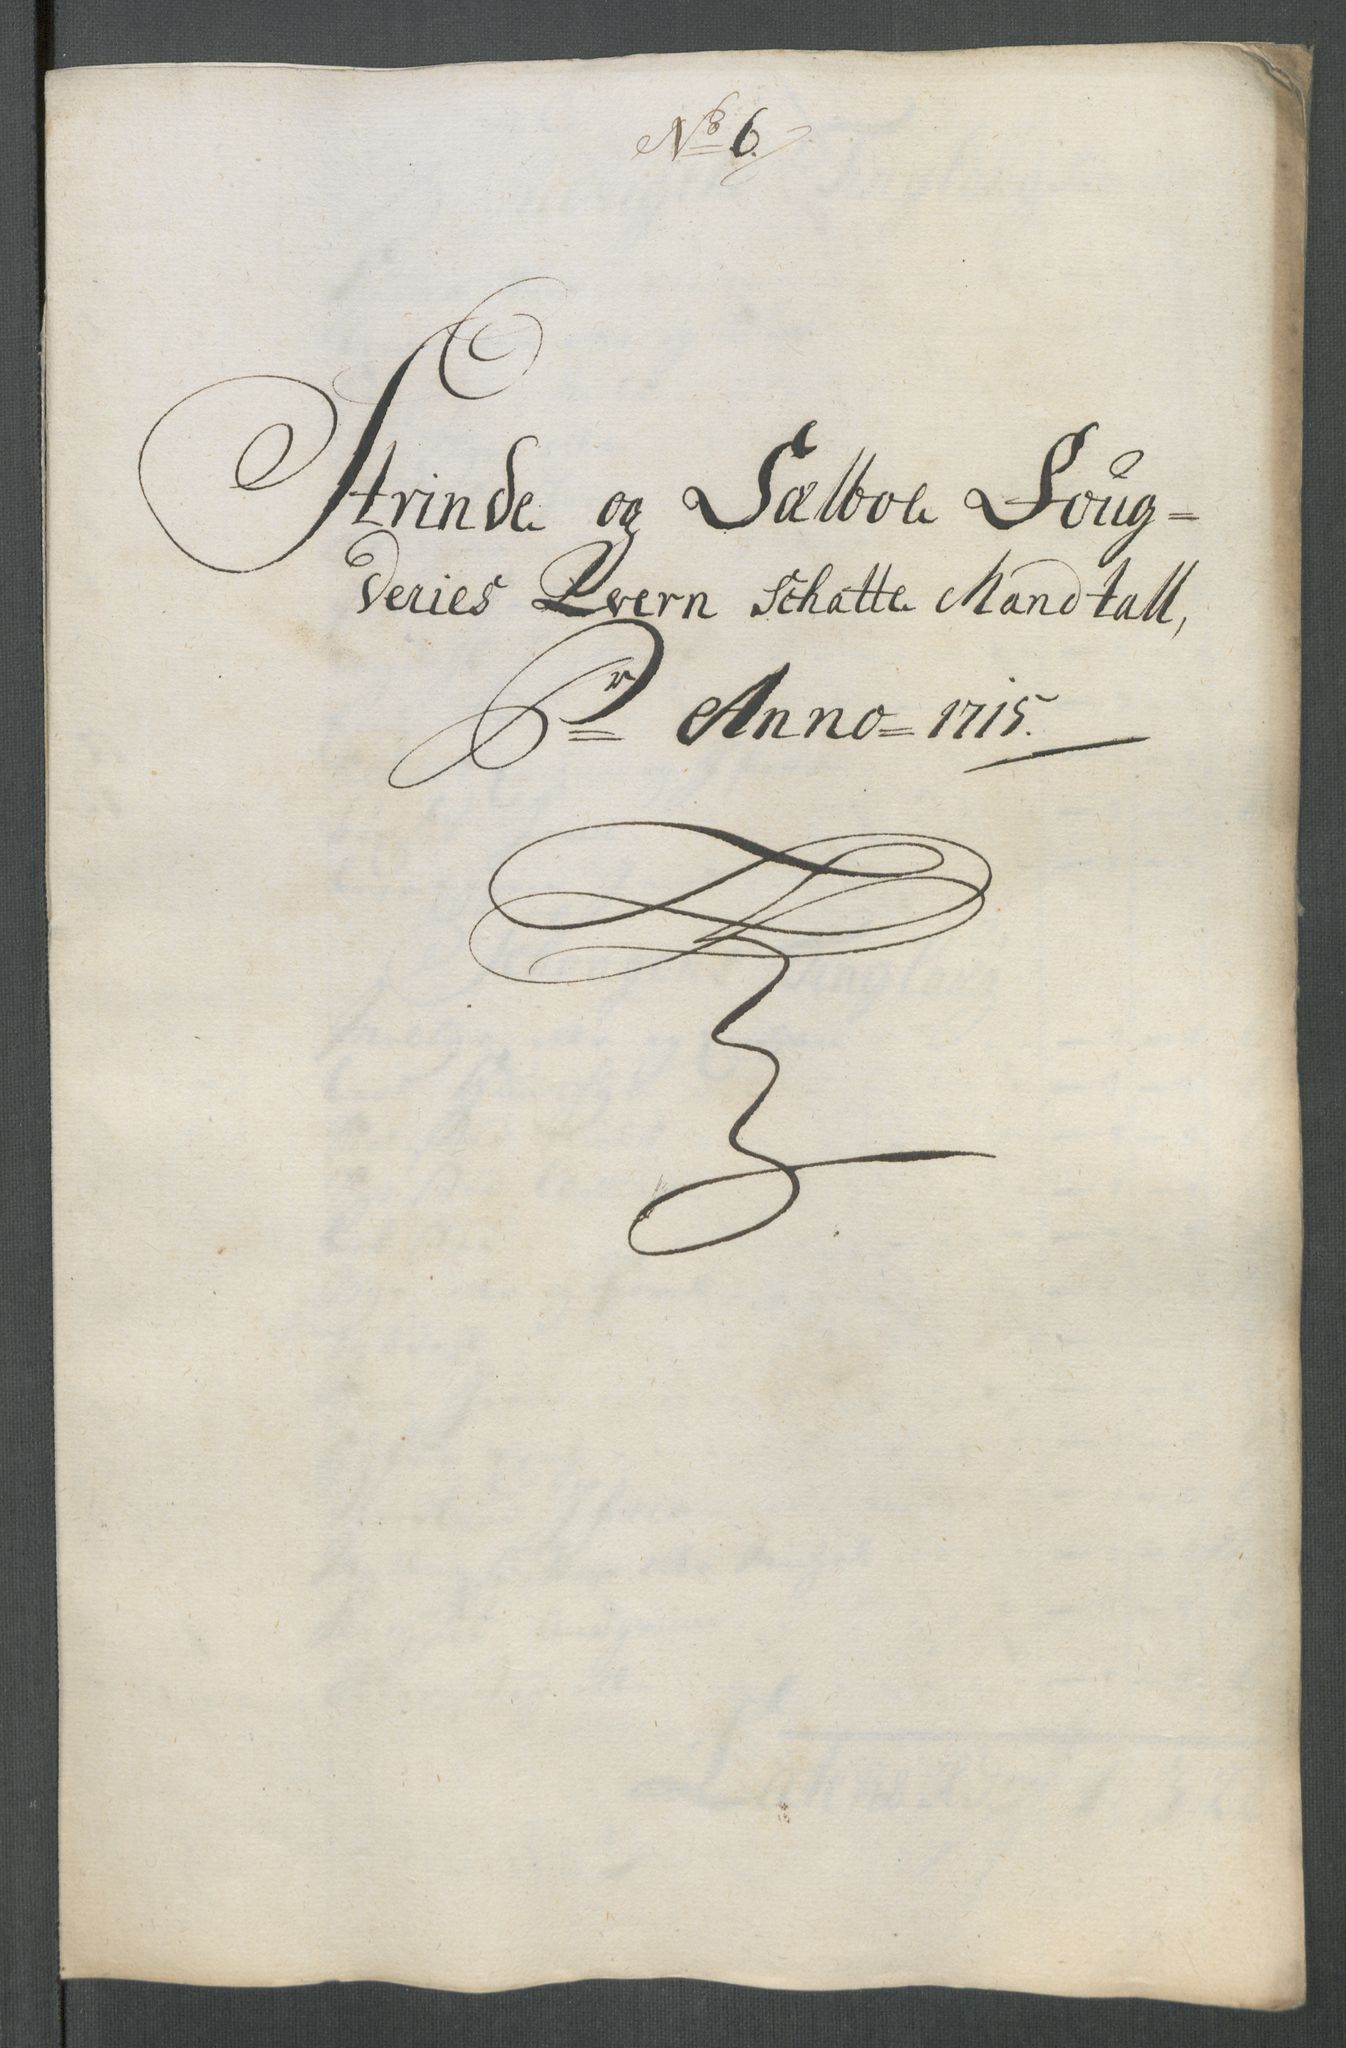 No 6.
Strinde og Sælboe Foug=
deries Qvern Schatte Mandtall,
Pr Anno = 1715.